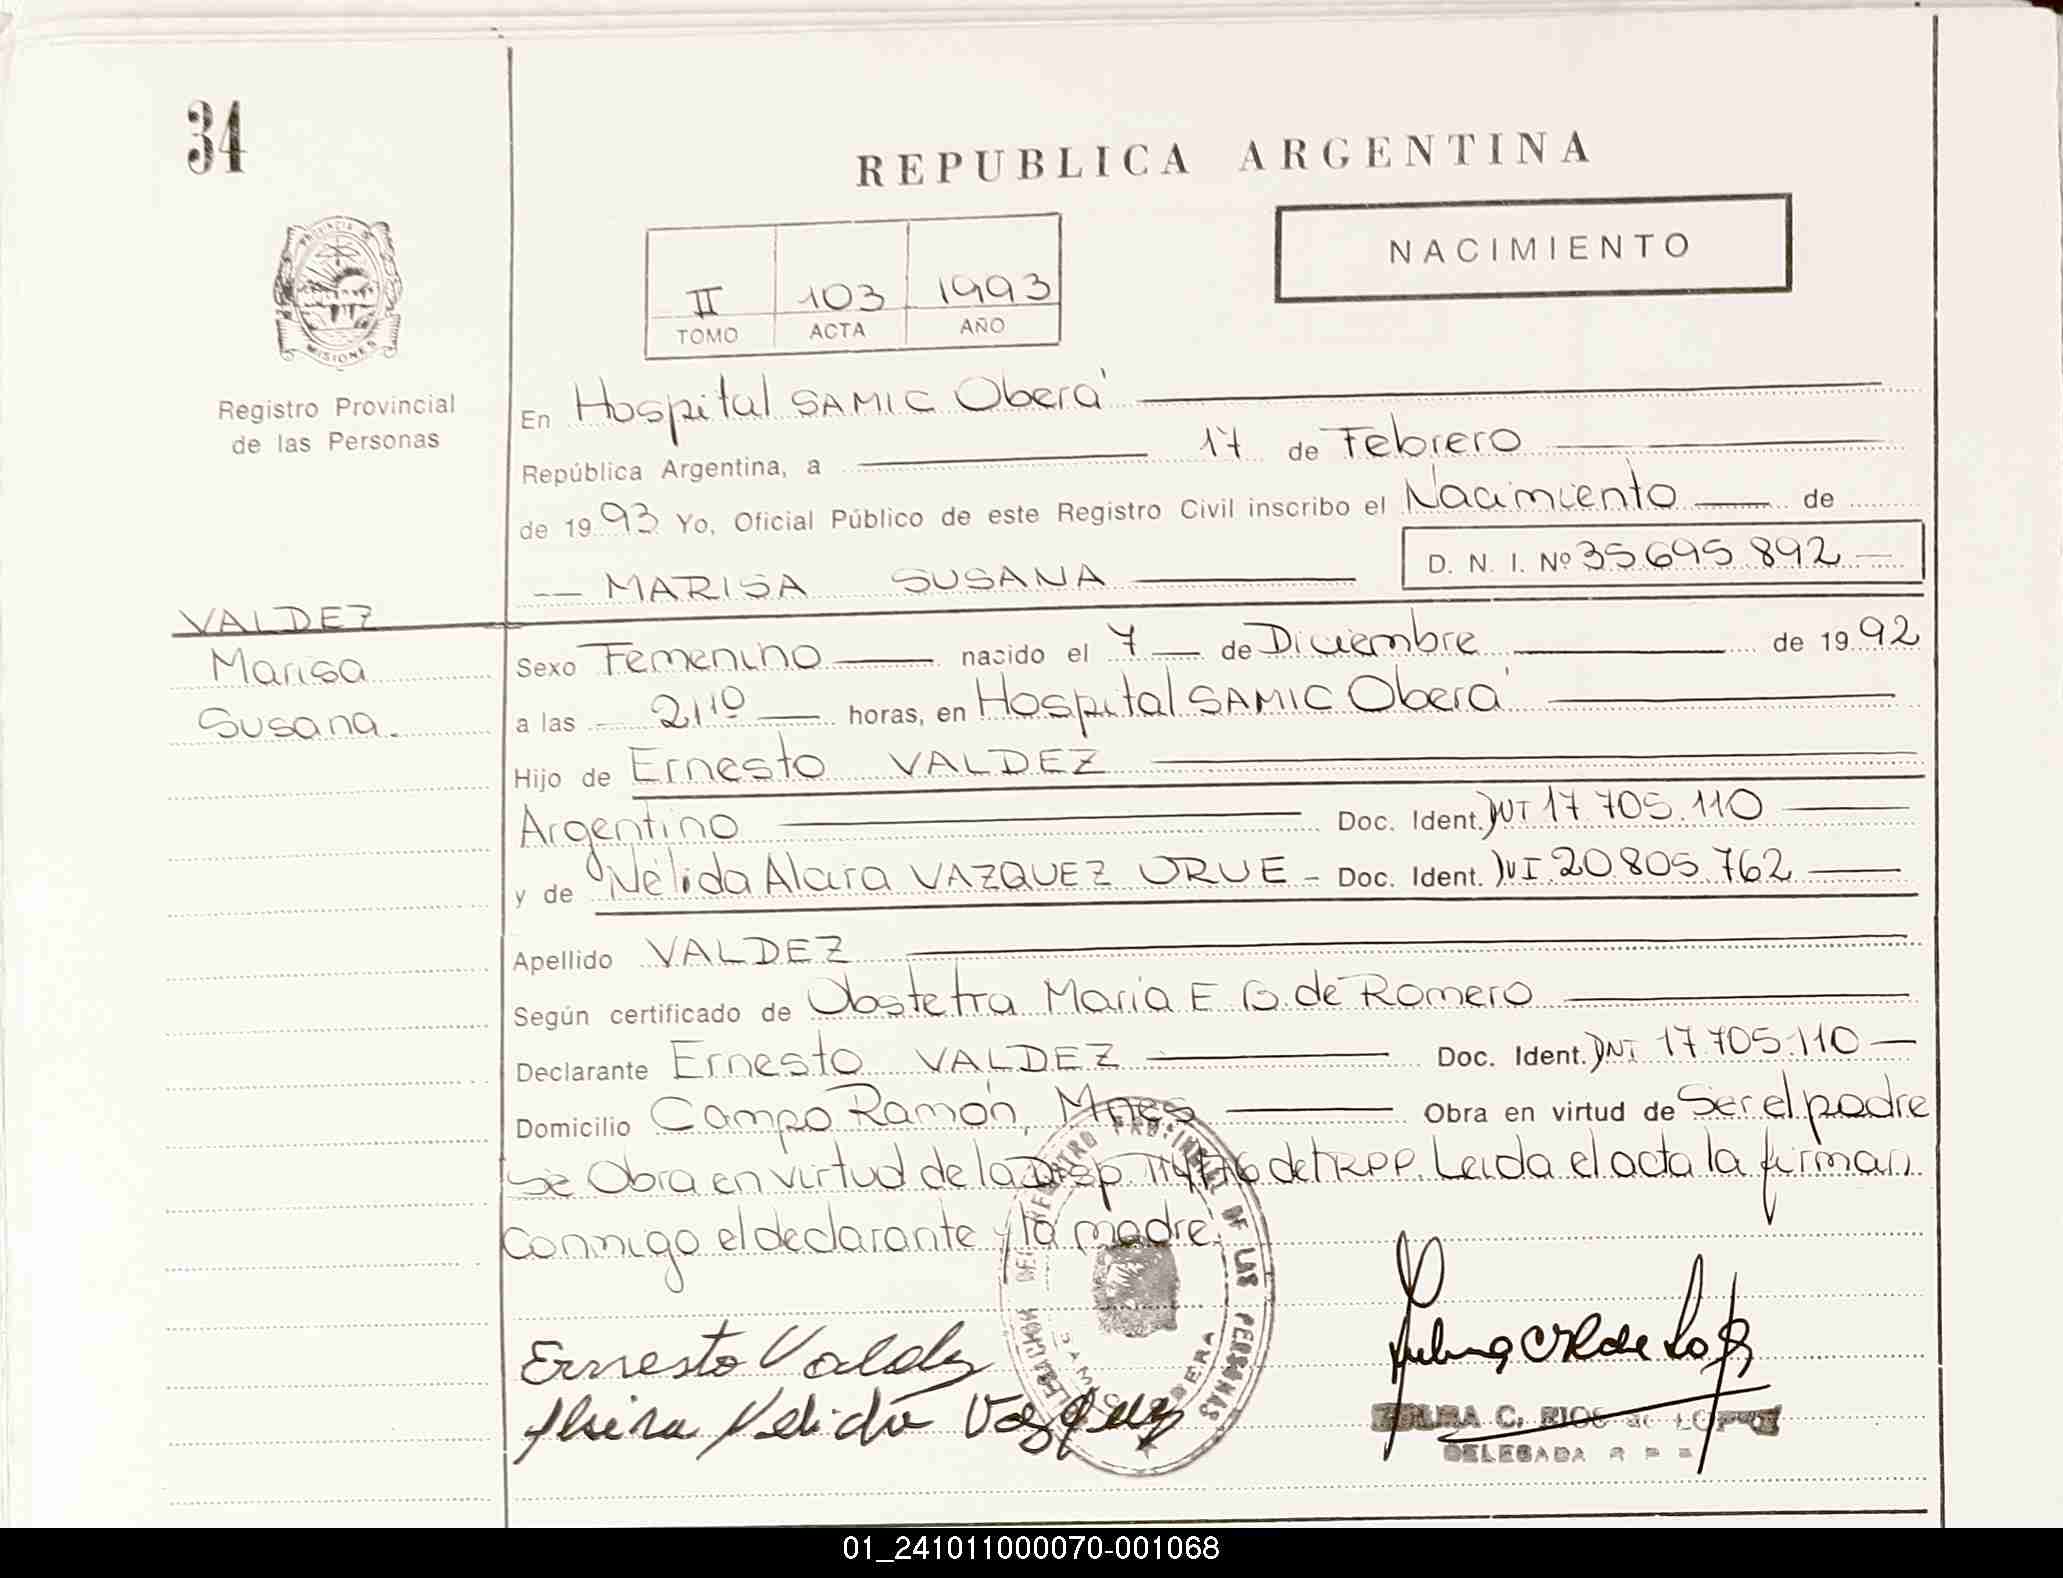 34
REPUBLICA ARGENTINA
NACIMIENTO
II 103 1993
TOMO ACTA AÑO
PROVINCIA DE
MISIONES
Registro Provincial
de las Personas
En Hospital SAMIC Oberá
República Argentina, a 17 de Febrero
de 1993 Yo, Oficial Público de este Registro Civil inscribo el Nacimiento de
MARISA SUSANA D. N. I. Nº 35.695.892
VALDEZ
Marisa
Susana.
Sexo Femenino nacido el 7 de Diciembre de 1992
a las 21 10 horas, en Hospital SAMIC Oberá
Hijo de Ernesto VALDEZ
Argentino Doc. Ident. DNI 17.705.110
y de Nélida Alcira VAZQUEZ URUE - Doc. Ident. DNI 20.805.762
Apellido VALDEZ
Según certificado de Obstetra Maria E. G. de Romero
Declarante Ernesto VALDEZ Doc. Ident. DNI 17.705.110
Domicilio Campo Ramón, Mnes Obra en virtud de Ser el padre
Se Obra en virtud de la Disp. del RPP. Leida el acta la firman
Conmigo el declarante y la madre.
REGISTRO PROVINCIAL DE LAS PERSONAS
OBERA
Ernesto Valdez
Alsira Nelida Vazquez
ZULMA C. RIOS de LOPEZ
DELEGADA R P P
01_241011000070-001068